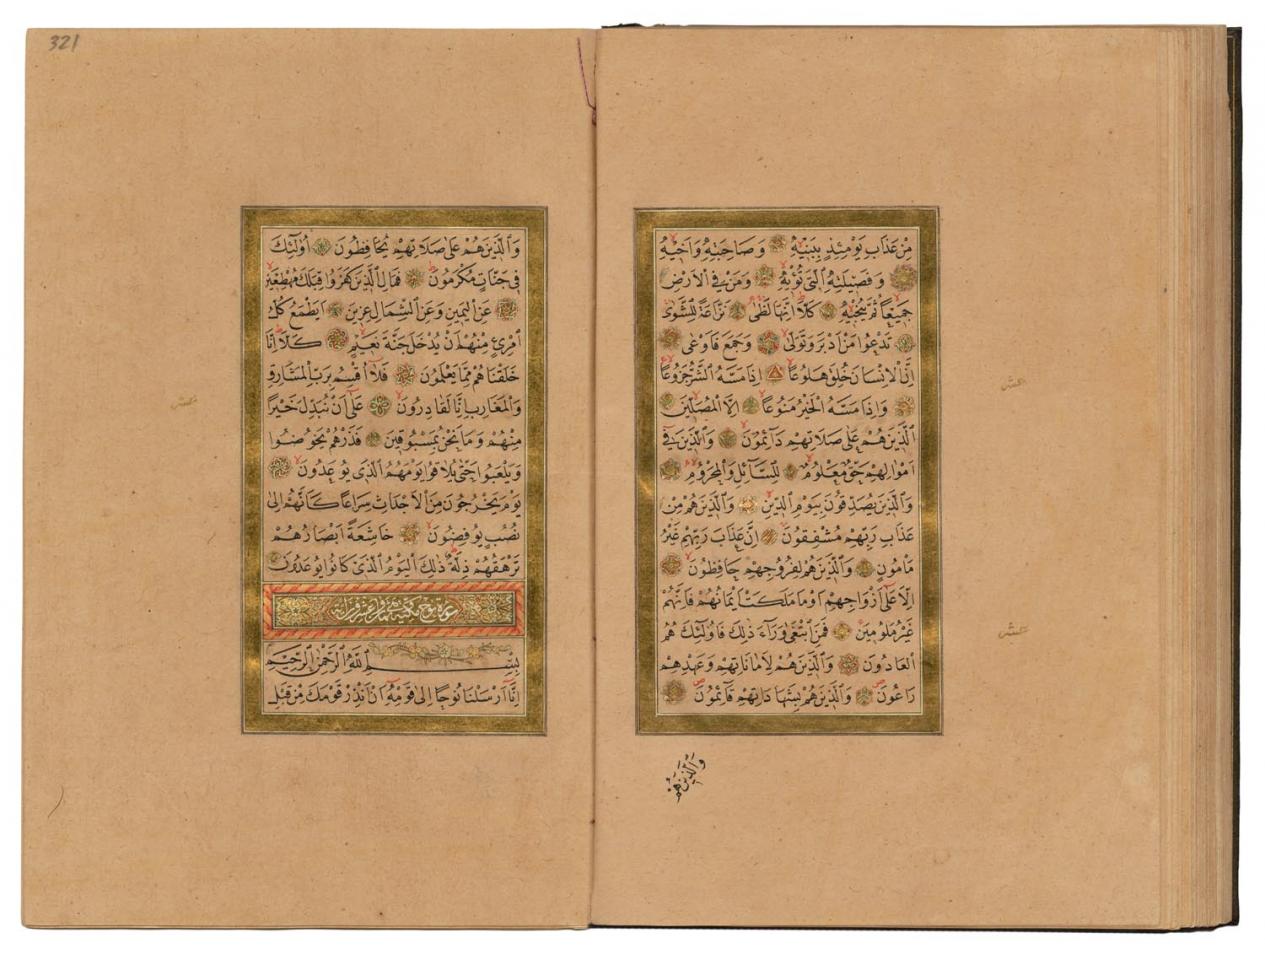 مِنْ عَذَابِ يَوْمَئِذٍ بِبَنِيهِ وَصَاحِبَتِهِ وَاَخِيهِ
وَفَصِيلَتِهِ الَّتِي تُؤْيهِ وَمَنْ فِي الْاَرْضِ
جَمِيعاً ثُمَّ يُنْجِيهِ كَلَّا اِنَّهَا لَظَى نَزَّاعَةً لِلشَّوَى
تَدْعُوا مَنْ اَدْبَرَ وَتَوَلَّى وَجَمَعَ فَاَوْعَى
اِنَّ الْاِنْسَانَ خُلِقَ هَلُوعاً اِذَا مَسَّهُ الشَّرُّ جَزُوعاً
وَاِذَا مَسَّهُ الْخَيْرُ مَنُوعاً اِلَّا الْمُصَلِّينَ
الَّذِينَ هُمْ عَلَى صَلَاتِهِمْ دَائِمُونَ وَالَّذِينَ فِي
اَمْوَالِهِمْ حَقٌّ مَعْلُومٌ لِلسَّائِلِ وَالْمَحْرُومِ
وَالَّذِينَ يُصَدِّقُونَ بِيَوْمِ الدِّينِ وَالَّذِينَ هُمْ مِنْ
عَذَابِ رَبِّهِمْ مُشْفِقُونَ اِنَّ عَذَابَ رَبِّهِمْ غَيْرُ
مَأْمُونٍ وَالَّذِينَ هُمْ لِفُرُوجِهِمْ حَافِظُونَ
اِلَّا عَلَى اَزْوَاجِهِمْ اَوْ مَا مَلَكَتْ اَيْمَانُهُمْ فَاِنَّهُمْ
غَيْرُ مَلُومِينَ فَمَنِ ابْتَغَى وَرَاءَ ذَلِكَ فَاُولَئِكَ هُمُ
الْعَادُونَ وَالَّذِينَ هُمْ لِاَمَانَاتِهِمْ وَعَهْدِهِمْ
رَاعُونَ وَالَّذِينَ هُمْ بِشَهَادَاتِهِمْ قَائِمُونَ
وَالَّذِينَ هُمْ
عشر
عشر
321
وَالَّذِينَ هُمْ عَلَى صَلَاتِهِمْ يُحَافِظُونَ اُولَئِكَ
فِي جَنَّاتٍ مُكْرَمُونَ فَمَالِ الَّذِينَ كَفَرُوا قِبَلَكَ مُهْطِعِينَ
عَنِ الْيَمِينِ وَعَنِ الشِّمَالِ عِزِينَ اَيَطْمَعُ كُلُّ
امْرِئٍ مِنْهُمْ اَنْ يُدْخَلَ جَنَّةَ نَعِيمٍ كَلَّا اِنَّا
خَلَقْنَاهُمْ مِمَّا يَعْلَمُونَ فَلَا اُقْسِمُ بِرَبِّ الْمَشَارِقِ
وَالْمَغَارِبِ اِنَّا لَقَادِرُونَ عَلَى اَنْ نُبَدِّلَ خَيْراً
مِنْهُمْ وَمَا نَحْنُ بِمَسْبُوقِينَ فَذَرْهُمْ يَخُوضُوا
وَيَلْعَبُوا حَتَّى يُلَاقُوا يَوْمَهُمُ الَّذِي يُوعَدُونَ
يَوْمَ يَخْرُجُونَ مِنَ الْاَجْدَاثِ سِرَاعاً كَاَنَّهُمْ اِلَى
نُصُبٍ يُوفِضُونَ خَاشِعَةً اَبْصَارُهُمْ
تَرْهَقُهُمْ ذِلَّةٌ ذَلِكَ الْيَوْمُ الَّذِي كَانُوا يُوعَدُونَ
سورة نوح مكية وهي ثمان وعشرون اية
بِسْمِ اللَّهِ الرَّحْمَنِ الرَّحِيمِ
اِنَّا اَرْسَلْنَا نُوحاً اِلَى قَوْمِهِ اَنْ اَنْذِرْ قَوْمَكَ مِنْ قَبْلِ
عشر